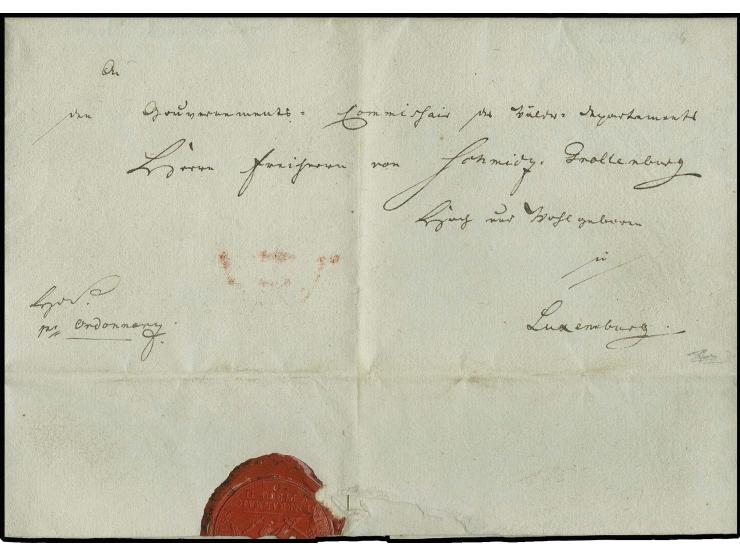 An
den Gouvernements-Commissair des Wälder-Departements
Herrn Freiherrn von Schmidz-Grollenburg
Hoch und Wohlgeboren
in
Luxemburg.
pr Ordonnanz.